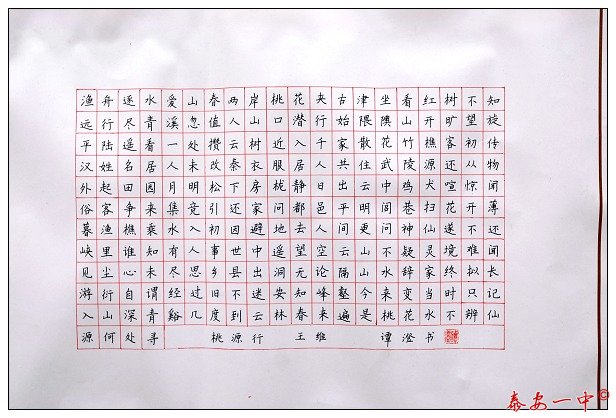 渔舟逐水爱山春两岸桃花夹古津坐看红树不知
远行尽青溪忽值人山口潜行始隈隩山开旷望旋
平陆遥看一处攒云树近入千家散花竹樵客初传
汉姓名居人未改秦衣服居人共住武陵源还从物
外起田园月明松下房栊静日出云中鸡犬喧惊闻
俗客争来集竞引还家问都邑平明闾巷扫花开薄
暮渔樵乘水入初因避地去人间更问神仙遂不还
峡里谁知有人事世中遥望空云山不疑灵境难闻
见尘心未尽思乡县出洞无论隔山水辞家终拟长
游衍自谓经过旧不迷安知峰壑今来变当时只记
入山深青谿几度到云林春来遍是桃花水不辨仙
源何处寻 桃源行 王维 谭澄书
泰安一中©